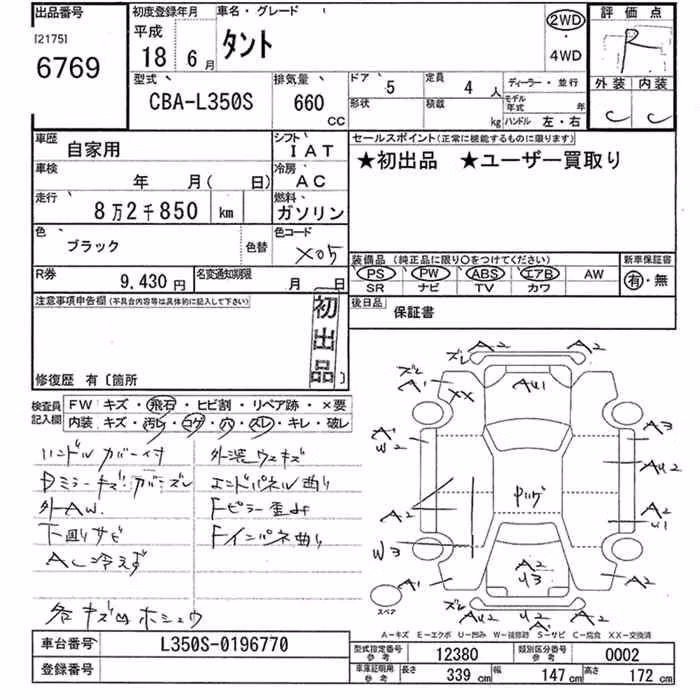 出品番号
[2175]
6769
初度登録年月
平成
18 6月
車名・グレード
タント
2WD
・
4WD
評価点
R
外装 内装
C C
型式
CBA-L350S
排気量
660
CC
ドア 5
定員 4 人
ディーラー・並行
形状
積載 kg
モデル年式 年
ハンドル 左・右
車歴 自家用
シフト IAT
車検 年 月( 日)
冷房 AC
走行 8万2千850 km
燃料 ガソリン
色 ブラック 色替
色コード X05
R券 9,430円
名変通知期限 月 日
セールスポイント(正常に機能するものに限ります)
★初出品 ★ユーザー買取り
装備品 (純正品に限り〇をつけてください)
PS PW ABS エアB AW
SR ナビ TV カワ
新車保証書
有・無
後日品 保証書
注意事項申告欄(不具合内容等は具体的に記入して下さい)
初出品
修復歴 有〔箇所 〕
検査員記入欄
FW キズ・飛石・ヒビ割・リペア跡・×要
内装 キズ・汚レ・コゲ・穴・スレ・キレ・破レ
ハンドルカバー付
Dミラーキズ ガリズレ
外AW.
下回りサビ
AC冷えず
各キズ凹ホシュウ
外装ウスキズ
エンドパネル曲り
Fピラー歪
Fインパネ曲り
A2 A2
ズレ
ズレ
A1 XX
AU1
A1
W2
A3
AU2
A2
Pハゲ
A2
U1
W3
A2
U3
A1
A2
スペア
ズレ
AU2 U2 A2
A1
A−キズ E−エクボ U−凹み W−補修跡 S−サビ C−腐食 XX−交換済
車台番号 L350S-0196770
登録番号
型式指定番号 参考 12380
類別区分番号 参考 0002
車庫証明用 参考 長さ 339cm 幅 147cm 高さ 172cm